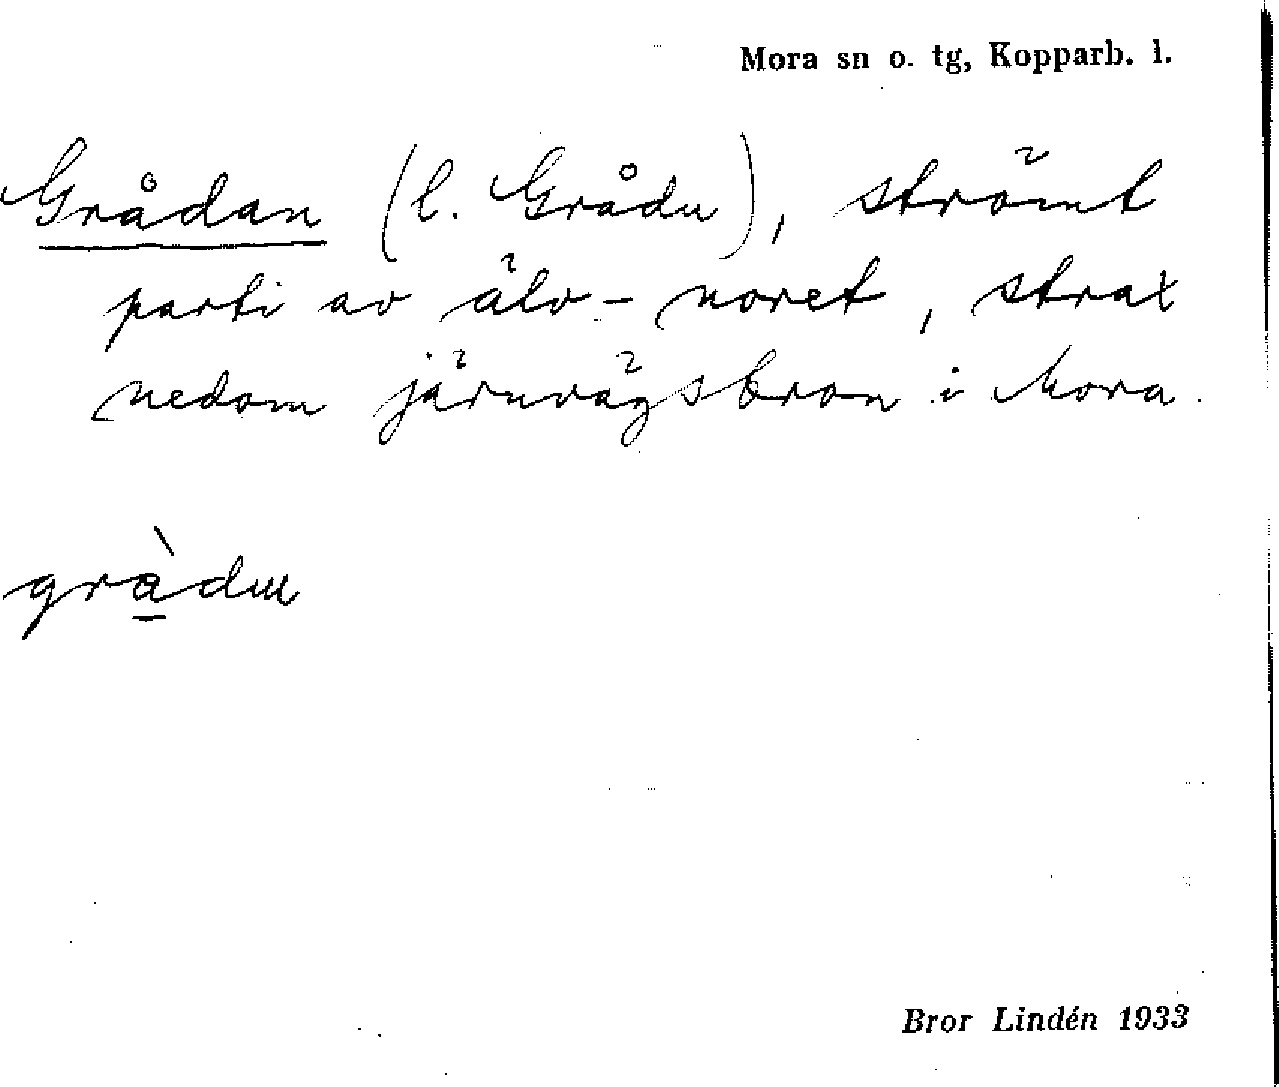 Mora sn o. tg, Kopparb. l.
Grådan (l. Grådu), strömt
parti av älv-noret, strax
nedom järnvägsbron i Mora.
gràdu
Bror Lindén 1933